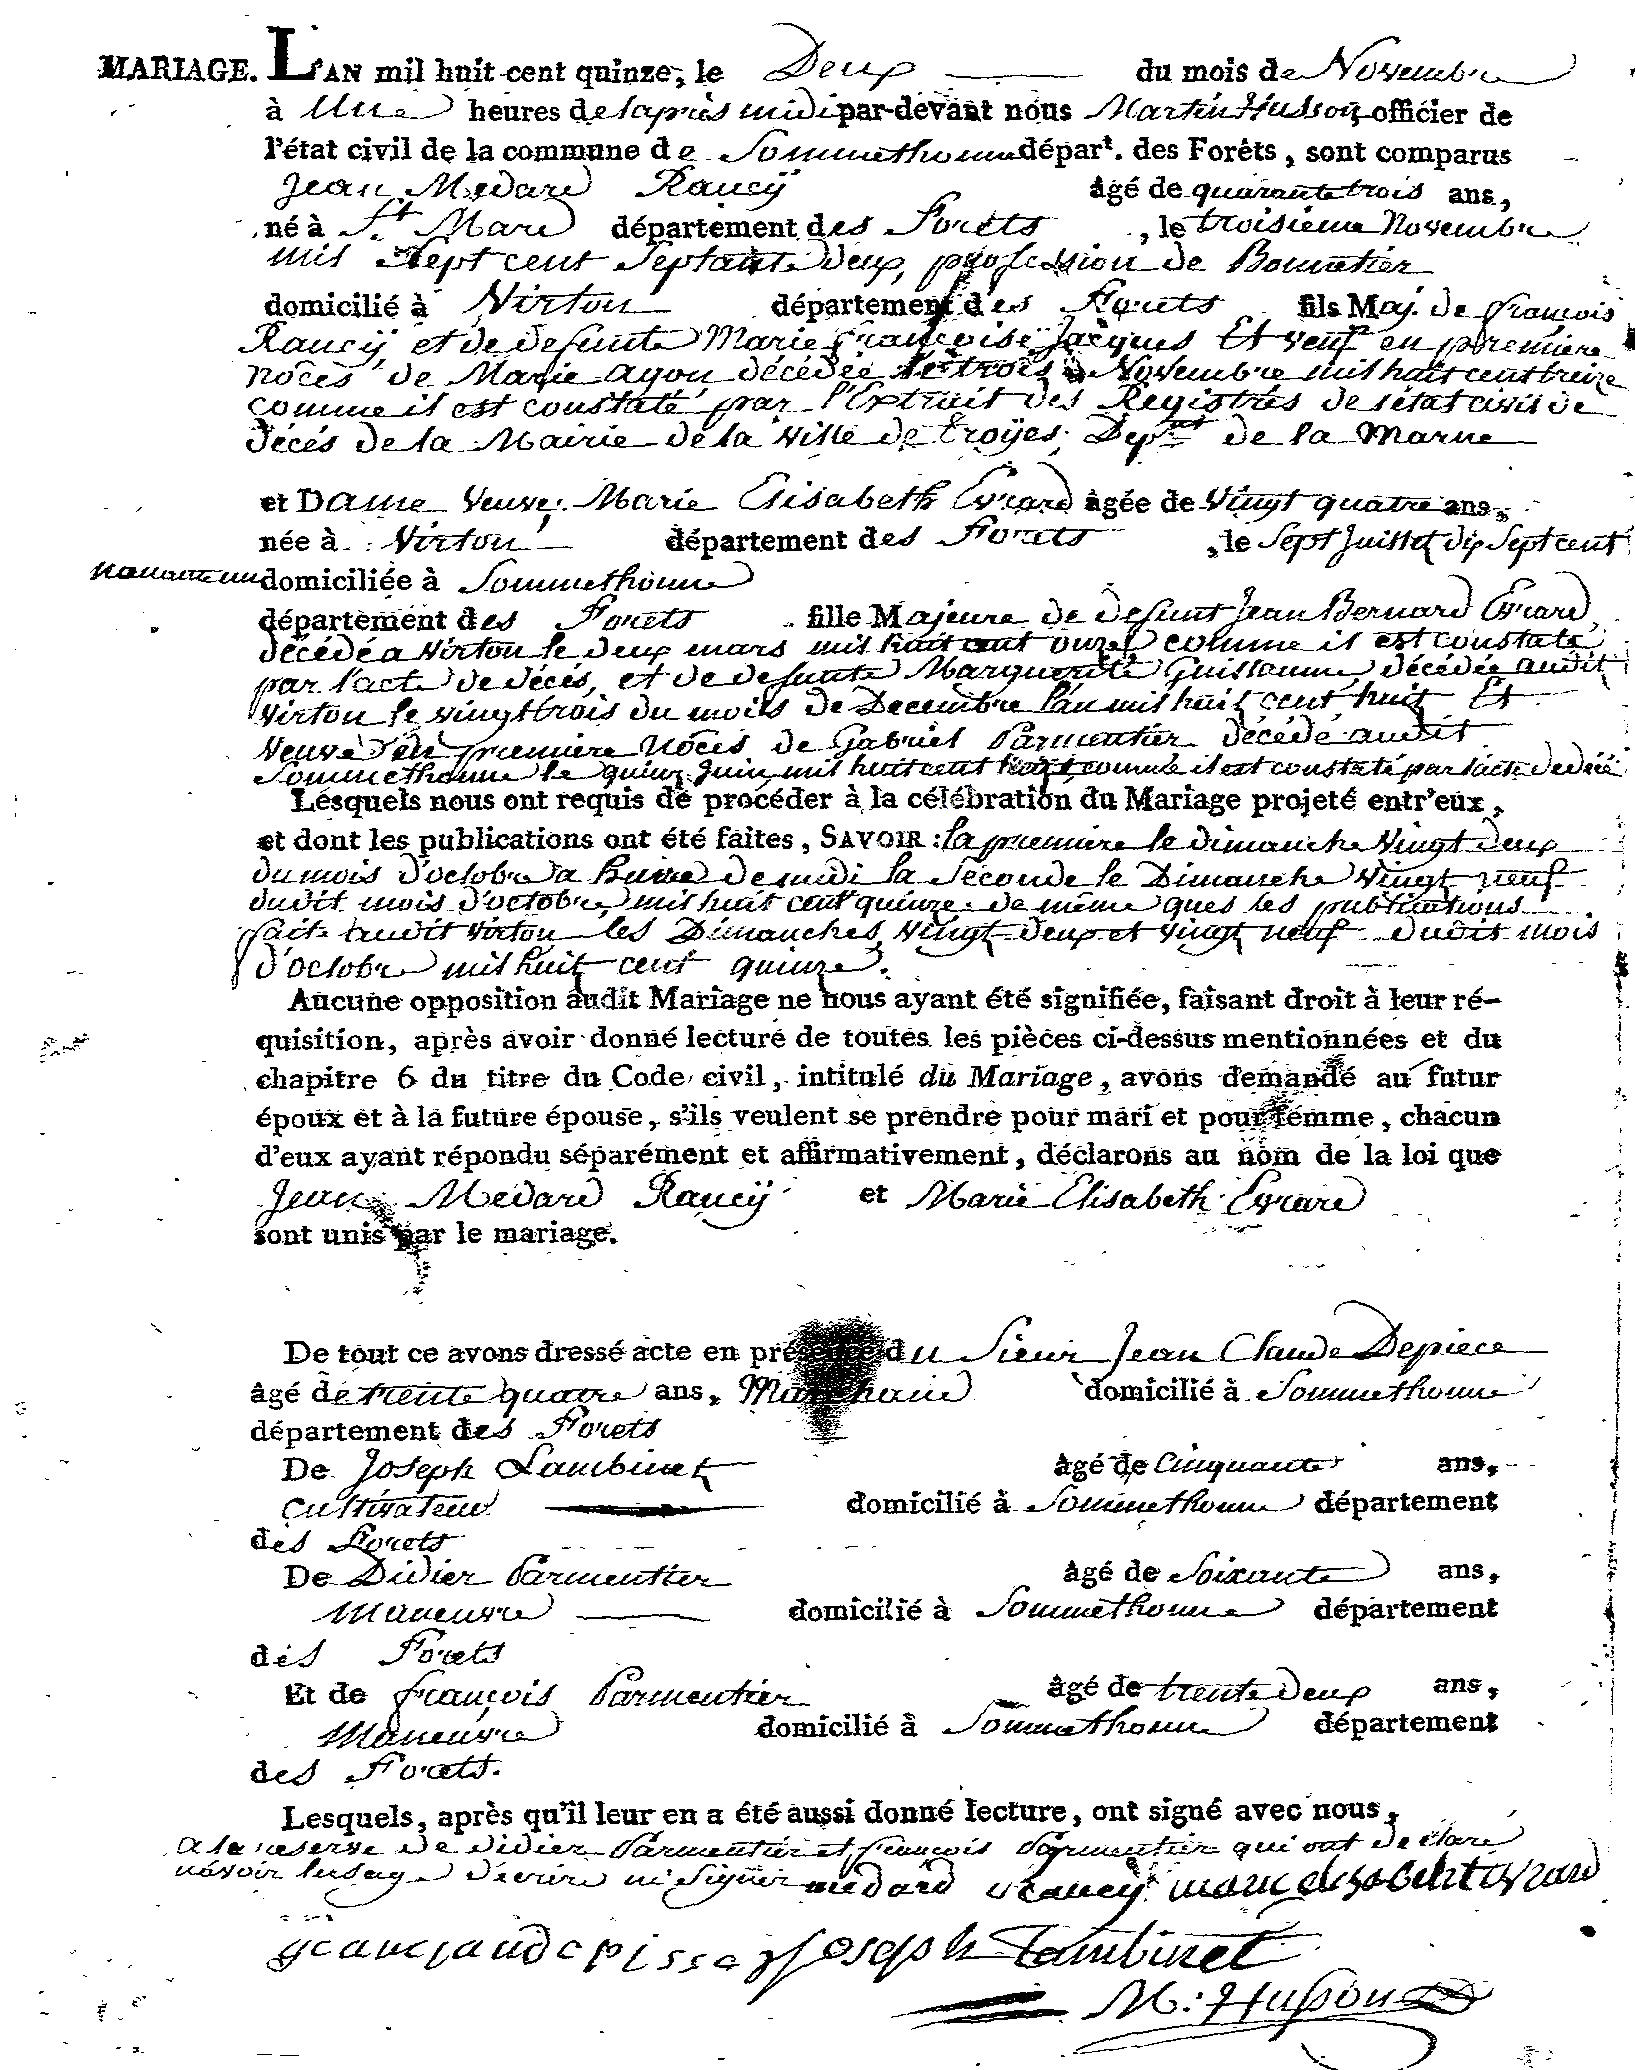 MARIAGE. L'AN mil huit cent quinze, le Deux du mois de Novembre
à Une heures de laprès midi par-devant nous Martin Husson officier de
l'état civil de la commune de Sommethonne départ. des Forêts, sont comparus
Jean Medard Raucÿ âgé de quarante trois ans,
né à St. Mard département des Forêts, le troisieme Novembre
mil Sept cent Septante deux, profession de Bonnetier
domicilié à Virton département des Forêts fils Maj. de françois
Raucÿ et de defunte Marie françoise Jacques Et veuf en première
noces de Marie ayon décédée le trois Novembre mil huit cent treize
comme il est constaté par l'Extrait des Registres de l'état civil de
décés de la Mairie de la ville de Troÿes, Depmt de la Marne
et Dame veuve Marie Elisabeth Evrard âgée de vingt quatre ans,
née à Virton département des Forets, le Sept Juillet dix Sept cent
nonante un domiciliée à Sommethonne
département des Forets fille Majeure de defunt Jean Bernard Evrard,
décédé a virton le deux mars mil huit cent onze comme il est constaté
par l'acte de décés, et de defunte Marguerite Guillaume, décédée audit
virton le vingt trois du mois de Decembre l'an mil huit cent huit Et
Veuve en première noces de Gabriel Parmentier décédé audit
Sommethonne le quinz Juin mil huit cent comme il est constaté par l'acte de décé
Lesquels nous ont requis de procéder à la célébration du Mariage projeté entr'eux,
et dont les publications ont été faites, SAVOIR : la première le dimanche vingt deux
du mois d'octobre a heure de midi la seconde le Dimanche vingt neuf
dudit mois d'octobre, mil huit cent quinze. de même ques les publications
faite audit virton les Dimanches vingt deux et vingt neuf dudit mois
d'octobre mil huit cent quinze.
Aucune opposition audit Mariage ne nous ayant été signifiée, faisant droit à leur ré-
quisition, après avoir donné lecture de toutes les pièces ci-dessus mentionnées et du
chapitre 6 du titre du Code civil, intitulé du Mariage, avons demandé au futur
époux et à la future épouse, s'ils veulent se prendre pour mari et pour femme, chacun
d'eux ayant répondu séparément et affirmativement, déclarons au nom de la loi que
Jean Medard Raucÿ et Marie Elisabeth Evrard
sont unis par le mariage.
De tout ce avons dressé acte en présence du Sieur Jean Claude Depiece
âgé de trente quatre ans, Marchand domicilié à Sommethonne
département des Forets
De Joseph Lambinet âgé de Cinquante ans,
cultivateur domicilié à Sommethonne département
des Forets
De Didier Parmentier âgé de Soixante ans,
Maneuvre domicilié à Sommethonne département
des Forets
Et de françois Parmentier âgé de trente deux ans,
Maneuvre domicilié à Sommethonne département
des Forets.
Lesquels, après qu'il leur en a été aussi donné lecture, ont signé avec nous,
a la reserve de didier Parmentier et françois Parmentier qui ont declaré
navoir lusage décrire ni signer medard Raucÿ marie elisabeht evrard
Joseph Lambinet
M: Husson